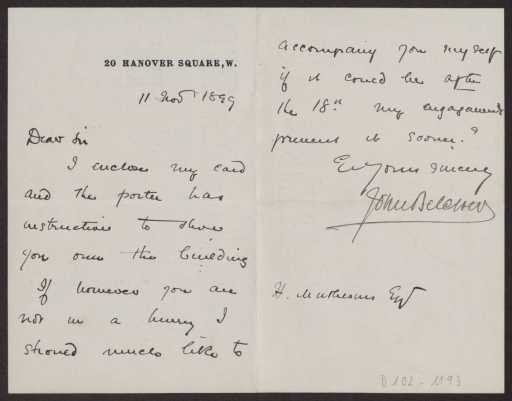 20 HANOVER SQUARE, W.
11 Nov 1899
Dear Sir
I enclose my card
and the porter has
instructions to show
you over the building
If however you are
not in a hurry I
should much like to
accompany you myself
if it could be after
the 18th my engagements
prevent it sooner.
Yours sincerely
John Belcher
H. Mathesius Esq
D 102 - 1193